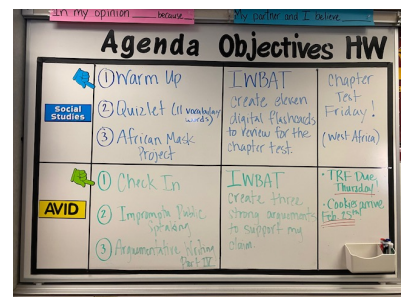 In my opinion ______ because ____
My partner and I believe ______
Agenda Objectives HW
Social
Studies
① Warm Up
② Quizlet (11 vocabulary
words)
③ African Mask
Project
IWBAT
create eleven
digital flashcards
to review for the
chapter test.
Chapter
Test
Friday!
(West Africa)
AVID
① Check In
② Impromptu Public
Speaking
③ Argumentative Writing
Part IV
IWBAT
create three
strong arguments
to support my
claim.
• TRF Due
Thursday!
• Cookies arrive
Feb. 25th!